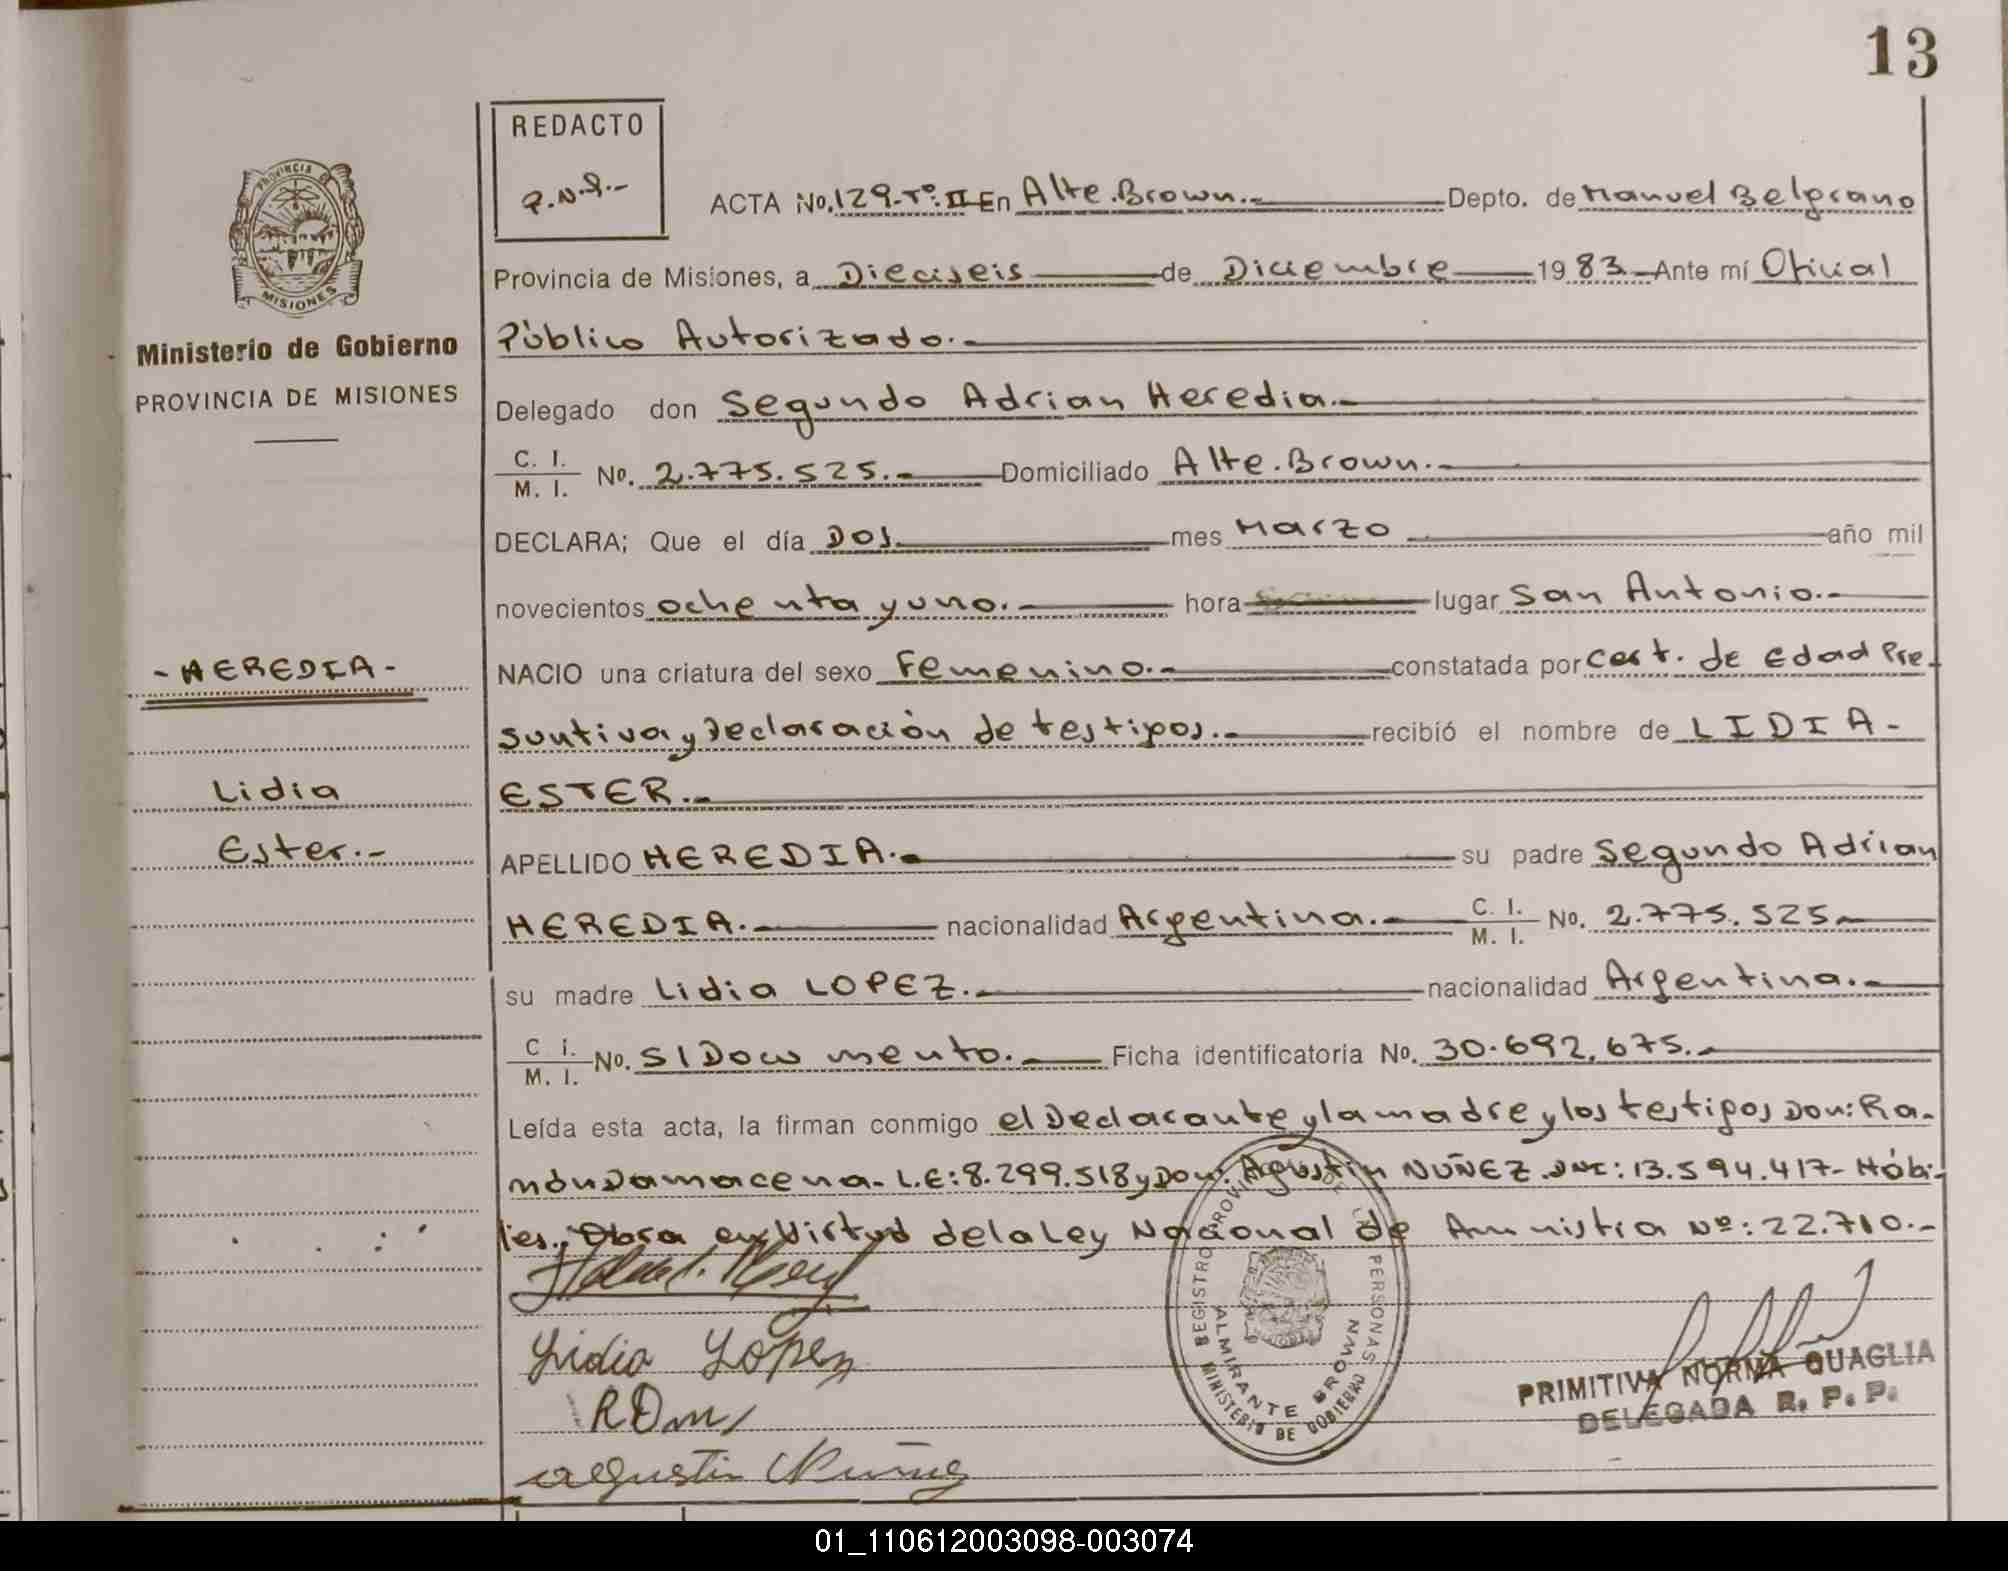 13
REDACTO
P.N.Q.-
PROVINCIA DE
MISIONES
Ministerio de Gobierno
PROVINCIA DE MISIONES
- HEREDIA -
Lidia
Ester.-
ACTA No. 129-Tº. II En Alte. Brown.- Depto. de Manuel Belgrano
Provincia de Misiones, a Dieciseis de Diciembre 1983 Ante mí Oficial
Público Autorizado.-
Delegado don Segundo Adrian Heredia.-
C. I. / M. I. No. 2.775.525.- Domiciliado Alte. Brown.-
DECLARA; Que el día Dos mes Marzo año mil
novecientos ochenta y uno.- hora lugar San Antonio.-
NACIO una criatura del sexo Femenino.- constatada por Cert. de Edad Pre-
suntiva y Declaración de testigos.- recibió el nombre de LIDIA -
ESTER.-
APELLIDO HEREDIA.- su padre Segundo Adrian
HEREDIA.- nacionalidad Argentina.- C. I. / M. I. No. 2.775.525-
su madre Lidia LOPEZ.- nacionalidad Argentina.-
C I. / M. I. No. S/Documento.- Ficha identificatoria No. 30.692.675.-
Leída esta acta, la firman conmigo el Declarante y la madre y los testigos Don: Ra-
món Damacena.- L.E: 8.299.518 y Don: Agustin NUÑEZ. DNI: 13.594.417- Hábi-
les. Obra en Virtud de la Ley Nacional de Amnistia Nº: 22.710.-
Lidia Lopez
RDm
agustin Nuñez
REGISTRO PROVINCIAL DE LAS PERSONAS
ALMIRANTE BROWN
MINISTERIO DE GOBIERNO
PRIMITIVA NORMA QUAGLIA
DELEGADA R. P. P.
01_110612003098-003074